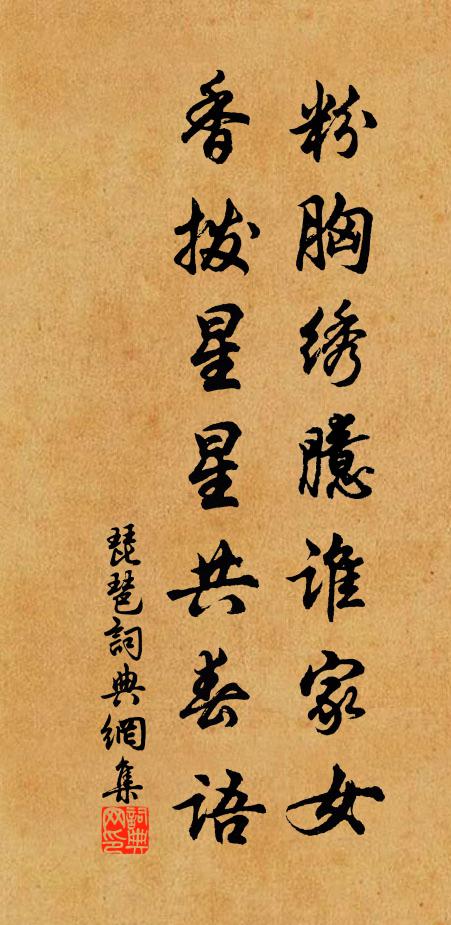 粉胸绣臆谁家女
香拨星星共春语
琵琶詞典網集
詞典網印